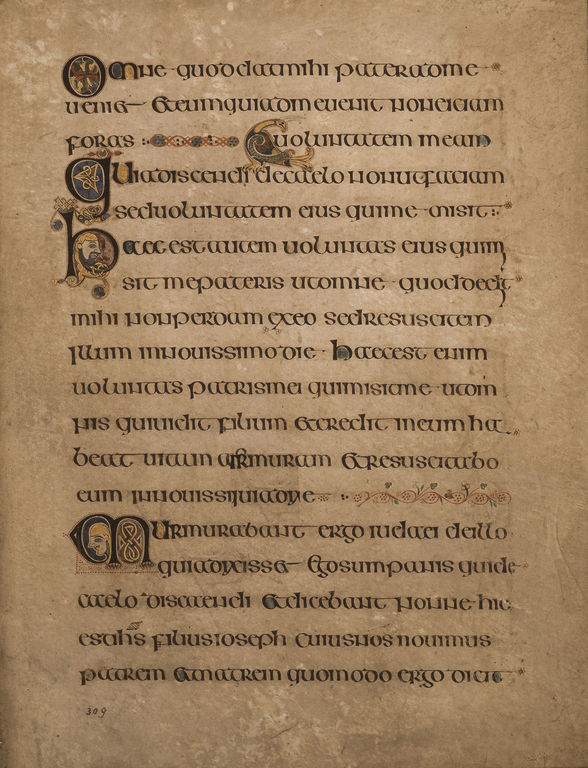 Omne quod dat mihi pater ad me
ueniet et eum qui ad me uenit non eiciam
foras : uoluntatem meam
Quia discendi de caelo non ut faciam
sed uoluntatem eius qui me misit :
haec est autem uoluntas eius qui m
sit me pateris ut omne quod dedit
mihi non perdam ex eo sed resuscitem
illum in nouissimo die · haec est enim
uoluntas patris mei qui misit me ut om
nis qui uidit filium et credit in eum ha
beat uitam et resuscitabo
eum in die
Murmurabant ergo iudaei de illo
quia dixisset ego sum panis qui de
caelo discendi et dicebant nonne hic
est ihs filius ioseph cuius nos nouimus
patrem et matrem quomodo ergo dicit
309